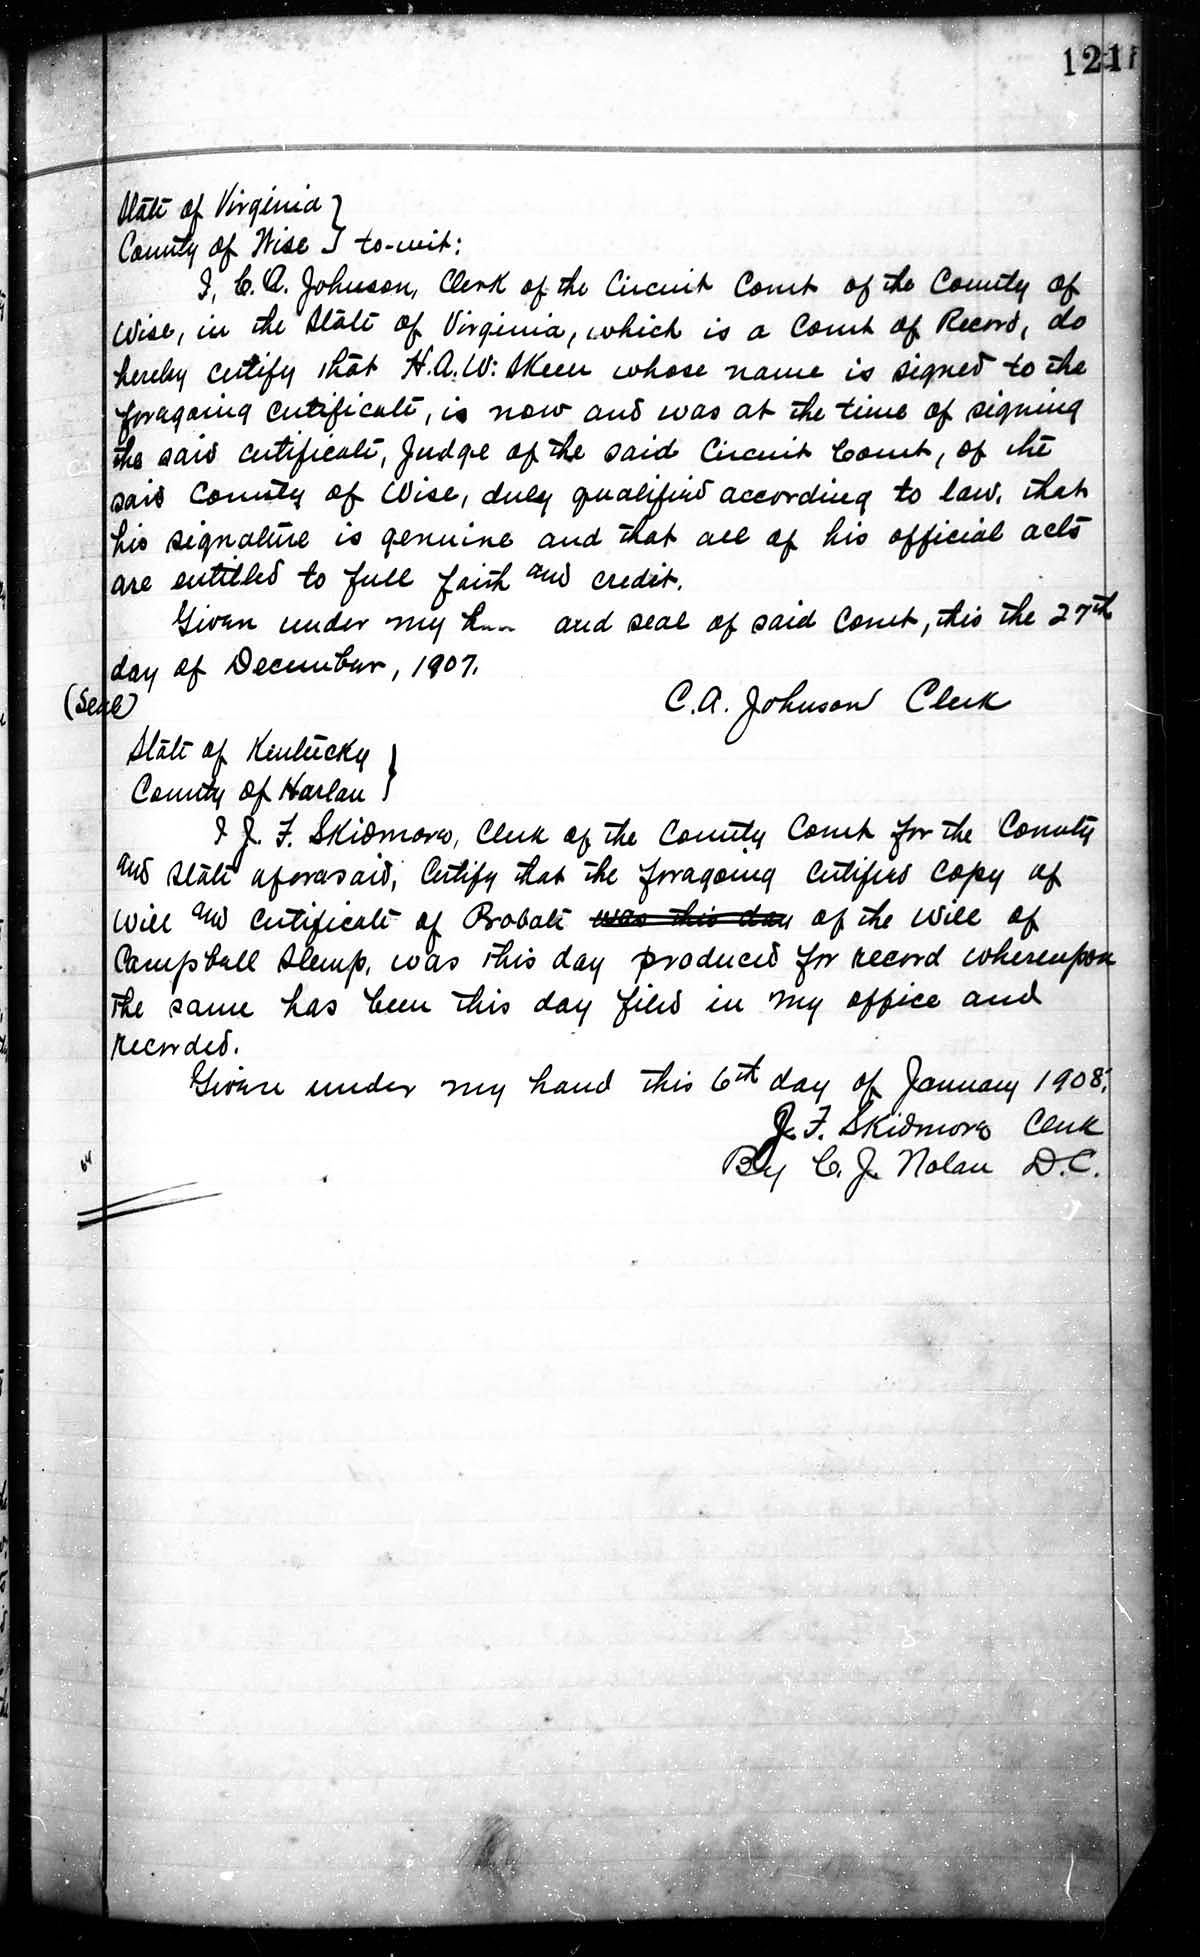 121
State of Virginia }
County of Wise } to-wit:
I, C. A. Johnson, Clerk of the Circuit Court of the County of
Wise, in the State of Virginia, which is a Court of Record, do
hereby certify that H.A.W. Skeen whose name is signed to the
foregoing certificate, is now and was at the time of signing
the said certificate, Judge of the said Circuit Court, of the
said County of Wise, duly qualified according to law, that
his signature is genuine and that all of his official acts
are entitled to full faith and credit.
Given under my and seal of said Court, this the 27th
day of December, 1907.
(Seal)
C. A. Johnson Clerk
State of Kentucky }
County of Harlan }
I J. F. Skidmore, Clerk of the County Court for the County
and State aforesaid, Certify that the foregoing Certified Copy of
Will and Certificate of Probate was this day of the Will of
Campbell Slemp, was this day produced for record whereupon
the same has been this day filed in my office and
recorded.
Given under my hand this 6th day of January 1908.
J. F. Skidmore Clerk
By C. J. Nolan D.C.